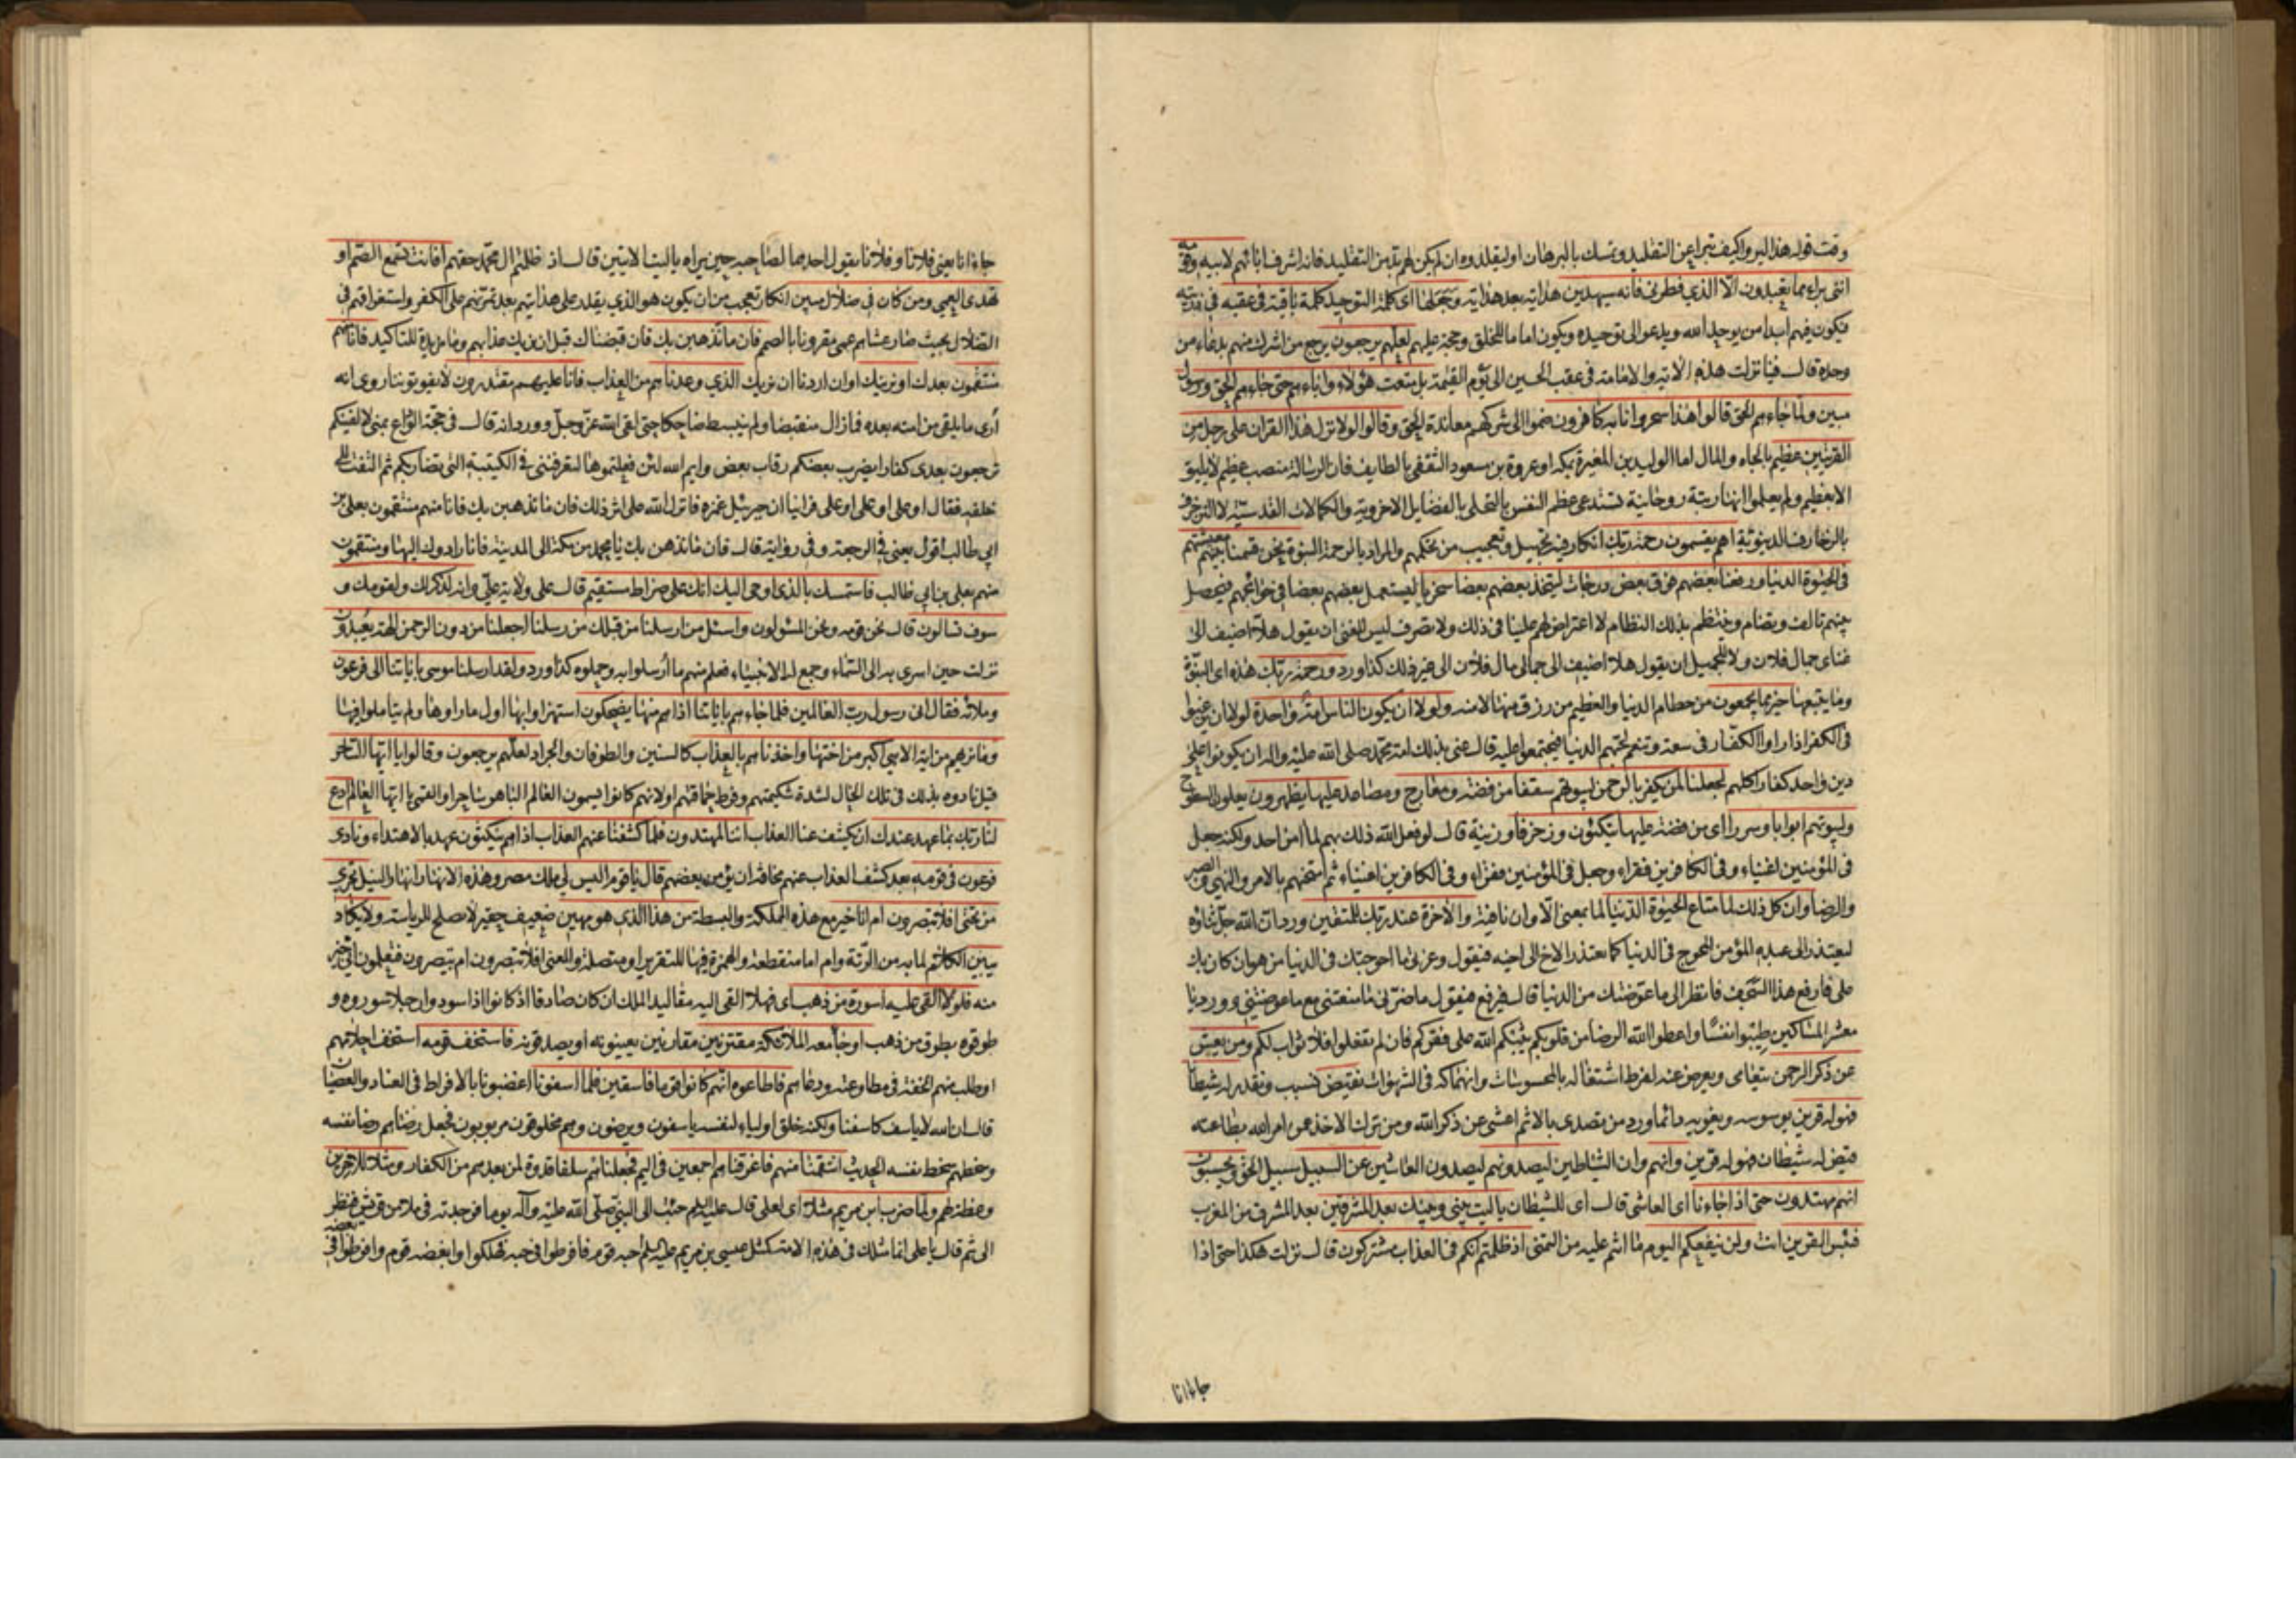 وقت قوله هذا ليروا كيف تبرأ عن التقليد وتمسك بالبرهان او ليقلدوه ان لم يكن لهم بد من التقليد فانه اشرف ابائهم لابيه وقومه
انني براء مما تعبدون الا الذي فطرني فانه سيهدين هداية بعد هداية وجعلها اى كلمة التوحيد كلمة باقية في عقبه في ذريته
فيكون فيهم ابدا من يوحد الله ويدعو الى توحيده ويكون اماما للخلق وحجة عليهم لعلهم يرجعون يرجع من اشرك منهم بدعاء من
وحده قال فينا نزلت هذه الاية والامامة في عقب الحسين الى يوم القيمة بل متعت هؤلاء واباءهم حتى جاءهم الحق ورسول
مبين ولما جاءهم الحق قالوا هذا سحر وانا به كافرون ضموا الى شركهم معاندة الحق وقالوا لولا نزل هذا القران على رجل من
القريتين عظيم بالجاه والمال اما الوليد بن المغيرة بمكه او عروة بن مسعود الثقفي بالطايف فان الرسالة منصب عظيم لا يليق
الا بعظيم ولم يعلموا انها رتبة روحانية تستدعى عظم النفس بالتحلى بالفضايل الاخروية والكمالات القدسية لا التزخرف
بالزخارف الدنيوية اهم يقسمون رحمة ربك انكار فيه تجهيل وتعجيب من تحكمهم والمراد بالرحمة النبوة نحن قسمنا بينهم معيشتهم
في الحيوة الدنيا ورفعنا بعضهم فوق بعض درجات ليتخذ بعضهم بعضا سخريا ليستعمل بعضهم بعضا في حوائجهم فيحصل
بينهم تالف وتضام وينتظم بذلك النظام لا اعتراض لهم علينا في ذلك ولا تصرف ليس للغني ان يقول هلا اضيف الى
غناى جمال فلان ولا للجميل ان يقول هلا اضيف الى جمالى مال فلان الى غير ذلك كذا ورد ورحمة ربك هذه اى النبوة
وما يتبعها خير مما يجمعون من حطام الدنيا والعظيم من رزق منها لا منه ولولا ان يكون الناس امة واحدة لولا ان يرغبوا
في الكفر اذا راوا الكفار في سعة وتنعم لحبهم الدنيا فيجتمعوا عليه قال عنى بذلك امة محمد صلى الله عليه واله ان يكونوا على
دين واحد كفارا كلهم لجعلنا لمن يكفر بالرحمن لبيوتهم سقفا من فضة ومعارج ومصاعد عليها يظهرون يعلون السطوح
ولبيوتهم ابوابا وسررا اى من فضة عليها يتكئون وزخرفا وزينة قال لو فعل الله ذلك بهم لما امن احد ولكنه جعل
في المؤمنين اغنياء وفي الكافرين فقراء وجعل في المؤمنين فقراء وفي الكافرين اغنياء ثم امتحنهم بالامر والنهى والصبر
والرضا وان كل ذلك لما متاع الحيوة الدنيا لما بمعنى الا وان نافية والاخرة عند ربك للمتقين ورد ان الله جل ثناؤه
ليعتذر الى عبده المؤمن المحوج في الدنيا كما يعتذر الاخ الى اخيه فيقول وعزتى ما احوجتك في الدنيا من هوان كان بك
على فارفع هذا السجف فانظر الى ما عوضتك من الدنيا قال فيرفع فيقول ما ضرني ما منعتنى مع ما عوضتنى وورد يا
معشر المساكين طيبوا نفسا واعطوا الله الرضا من قلوبكم يثبكم الله على فقركم فان لم تفعلوا فلا ثواب لكم ومن يعش
عن ذكر الرحمن يتعامى ويعرض عنه لفرط اشتغاله بالمحسوسات وانهماكه في الشهوات نقيض نسبب ونقدر له شيطانا
فهو له قرين يوسوسه ويغويه دائما ورد من تصدى بالاثم اعشى عن ذكر الله ومن ترك الاخذ عمن امر الله بطاعته
قيض له شيطان فهو له قرين وانهم وان الشياطين ليصدونهم ليصدون العاشين عن السبيل سبيل الحق ويحسبون
انهم مهتدون حتى اذا جاءنا اى العاشى قال اى للشيطان يا ليت بينى وبينك بعد المشرقين بعد المشرق من المغرب
فبئس القرين انت ولن ينفعكم اليوم ما انتم عليه من التمنى اذ ظلمتم انكم في العذاب مشتركون قال نزلت هكذا حتى اذا
جاءانا
جاءانا يعنى فلانا وفلانا يقول احدهما لصاحبه حين يراه يا ليت الايتين قال اذ ظلمتم ال محمد حقهم افانت تسمع الصم او
تهدى العمي ومن كان في ضلال مبين انكار تعجب من ان يكون هو الذي يقدر على هدايتهم بعد تمرنهم على الكفر واستغراقهم في
الضلال بحيث صار عشاهم عمى مقرونا بالصمم فان ما نذهبن بك فان قبضناك قبل ان نريك عذابهم وما مزيدة للتاكيد فانا منهم
منتقمون بعدك او نرينك او ان اردنا ان نريك الذي وعدناهم من العذاب فانا عليهم مقتدرون لا يفوتوننا روى انه
أرى ما يلقى من امته بعده فما زال منقبضا ولم ينبسط ضاحكا حتى لقى الله عز وجل وورد انه قال في حجة الوداع بمنى لالفينكم
ترجعون بعدى كفارا يضرب بعضكم رقاب بعض وايم الله لئن فعلتموها لتعرفننى في الكتيبة التى تضاربكم ثم التفت الى
خلفه فقال او على او على او على فراينا ان جبرئيل غمزه فانزل الله على اثر ذلك فان ما نذهبن بك فانا منهم منتقمون بعلى بن
ابي طالب اقول يعنى في الرجعة وفي رواية قال فان ما نذهبن بك يا محمد من مكة الى المدينة فانا رادوك اليها ومنتقمون
منهم بعلى بن ابي طالب فاستمسك بالذى اوحى اليك انك على صراط مستقيم قال على ولاية علي وانه لذكر لك ولقومك و
سوف تسالون قال نحن قومه ونحن المسئولون واسئل من ارسلنا من قبلك من رسلنا اجعلنا من دون الرحمن الهة يعبدون
نزلت حين اسرى به الى السماء وجمع له الانبياء فعلم منهم ما أرسلوا به وحملوه كذا ورد ولقد ارسلنا موسى باياتنا الى فرعون
وملائه فقال انى رسول رب العالمين فلما جاءهم باياتنا اذا هم منها يضحكون استهزاوا بها اول ما راوها ولم يتاملوا فيها
وما نريهم من اية الا هي اكبر من اختها واخذناهم بالعذاب كالسنين والطوفان والجراد لعلهم يرجعون وقالوا يا ايها الساحر
قيل نادوه بذلك في تلك الحال لشدة شكيمتهم وفرط حماقتهم او لانهم كانوا يسمون العالم الباهر ساحرا والقمي يا ايها العالم ادع
لنا ربك بما عهد عندك ان يكشف عنا العذاب اننا لمهتدون فلما كشفنا عنهم العذاب اذا هم ينكثون عهده بالاهتداء ونادى
فرعون في قومه بعد كشف العذاب عنهم مخافة ان يؤمن بعضهم قال يا قوم اليس لي ملك مصر وهذه الانهار انهار النيل تجرى
من تحتى افلا تبصرون ام انا خير مع هذه المملكة والبسطة من هذا الذى هو مهين ضعيف حقير لا يصلح للرياسة ولا يكاد
يبين الكلام لما به من الرتة وام اما منقطعة والهمزة فيها للتقرير او متصلة والمعنى افلا تبصرون ام تبصرون فتعلمون انى خير
منه فلولا القى عليه اسورة من ذهب اى فهلا القى اليه مقاليد الملك ان كان صادقا اذ كانوا اذا سودوا رجلا سوروه و
طوقوه بطوق من ذهب او جاء معه الملائكة مقترنين مقارنين يعينونه او يصدقونه فاستخف قومه استخف احلامهم
او طلب منهم الخفة في مطاوعته ودعاهم فاطاعوه انهم كانوا قوما فاسقين فلما اسفونا اغضبونا بالافراط في العناد والعصيان
قال ان الله لا ياسف كاسفنا ولكنه خلق اولياء لنفسه ياسفون ويرضون وهم مخلوقون مربوبون فجعل رضاهم رضا نفسه
وسخطهم سخط نفسه الحديث انتقمنا منهم فاغرقناهم اجمعين في اليم فجعلناهم سلفا قدوة لمن بعدهم من الكفار ومثلا للاخرين
وعظة لهم ولما ضرب ابن مريم مثلا اى لعلى قال عليه السلم جئت الى النبى صلى الله عليه وآله يوما فوجدته في ملا من قريش فنظر
الى ثم قال يا على انما مثلك في هذه الامة كمثل عيسى بن مريم عليه السلم احبه قوم فافرطوا في حبه فهلكوا وابغضه قوم وافرطوا في بغضه